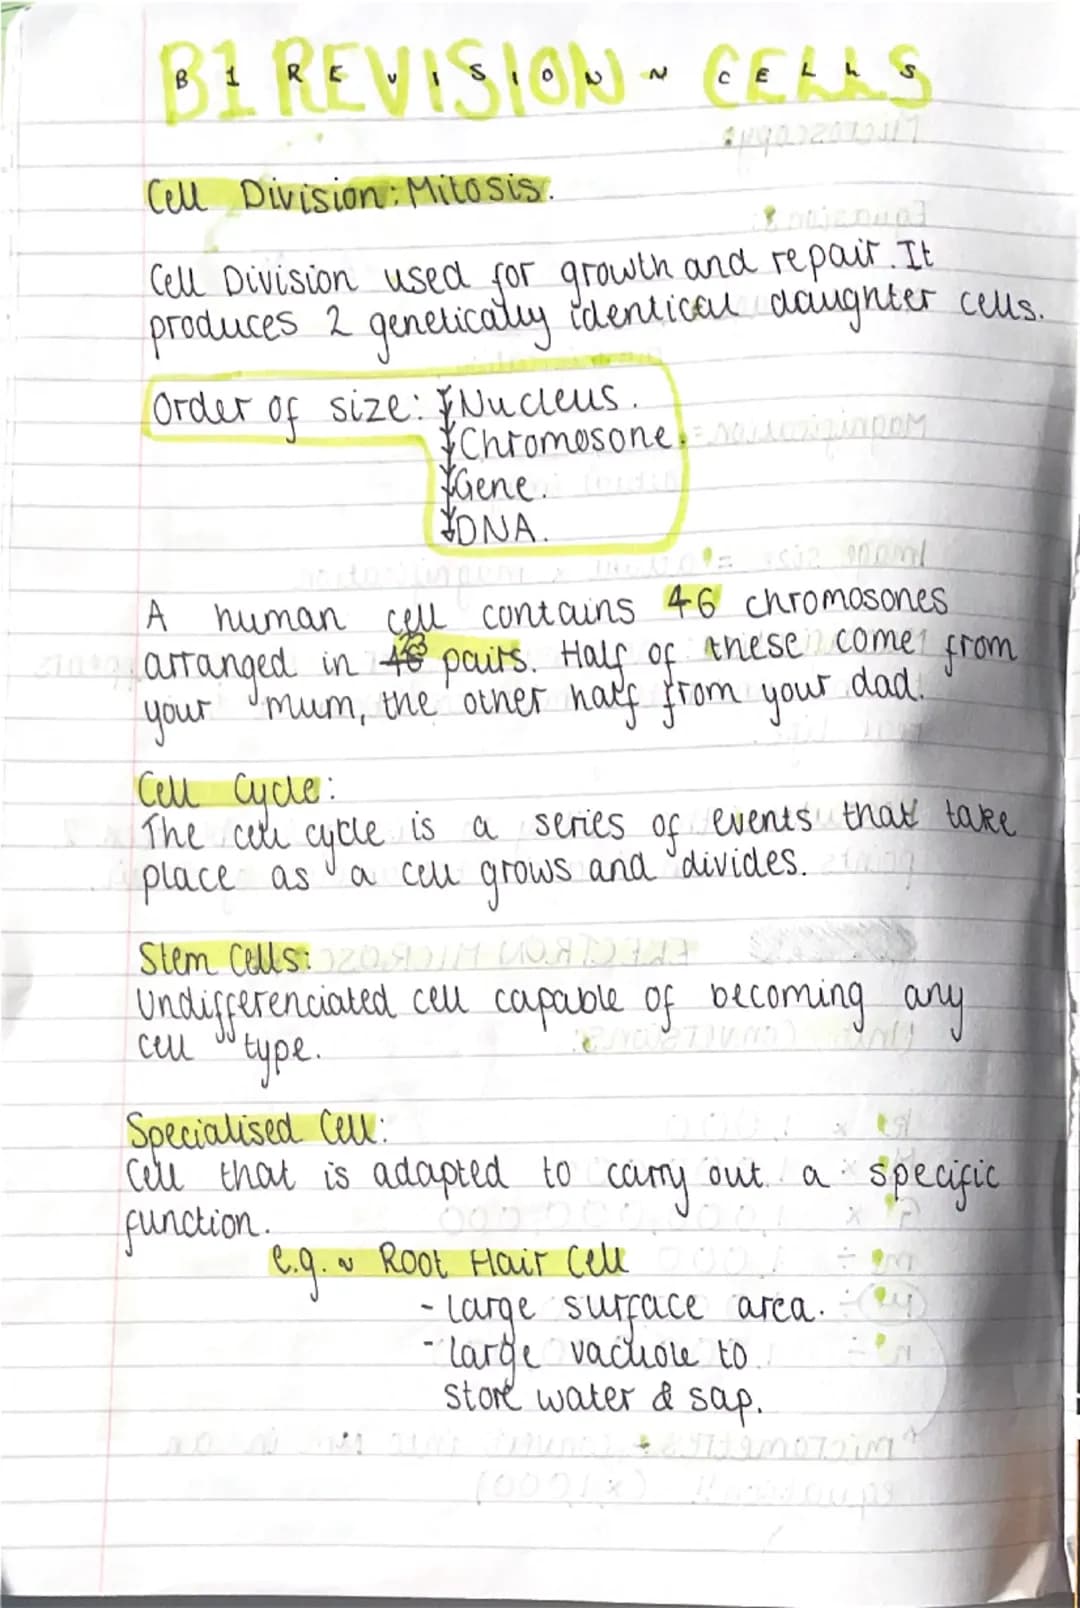 B1 REVISION ~ CELLS
Cell Division: Mitosis.
Cell Division used for growth and repair. It
produces 2 genetically identical daughter cells.
Order of size: Nucleus.
Chromosone.
Gene.
DNA.
A human cell contains 46 chromosones
arranged in 23 pairs. Half of these come from
your mum, the other half from your dad.
Cell Cycle:
The cell cycle is a series of events that take
place as a cell grows and divides.
Stem Cells:
Undifferenciated cell capable of becoming any
cell type.
Specialised Cell:
Cell that is adapted to carry out a specific
function.
e.g. ~ Root Hair Cell
- large surface area.
- large vacuole to
store water & sap.